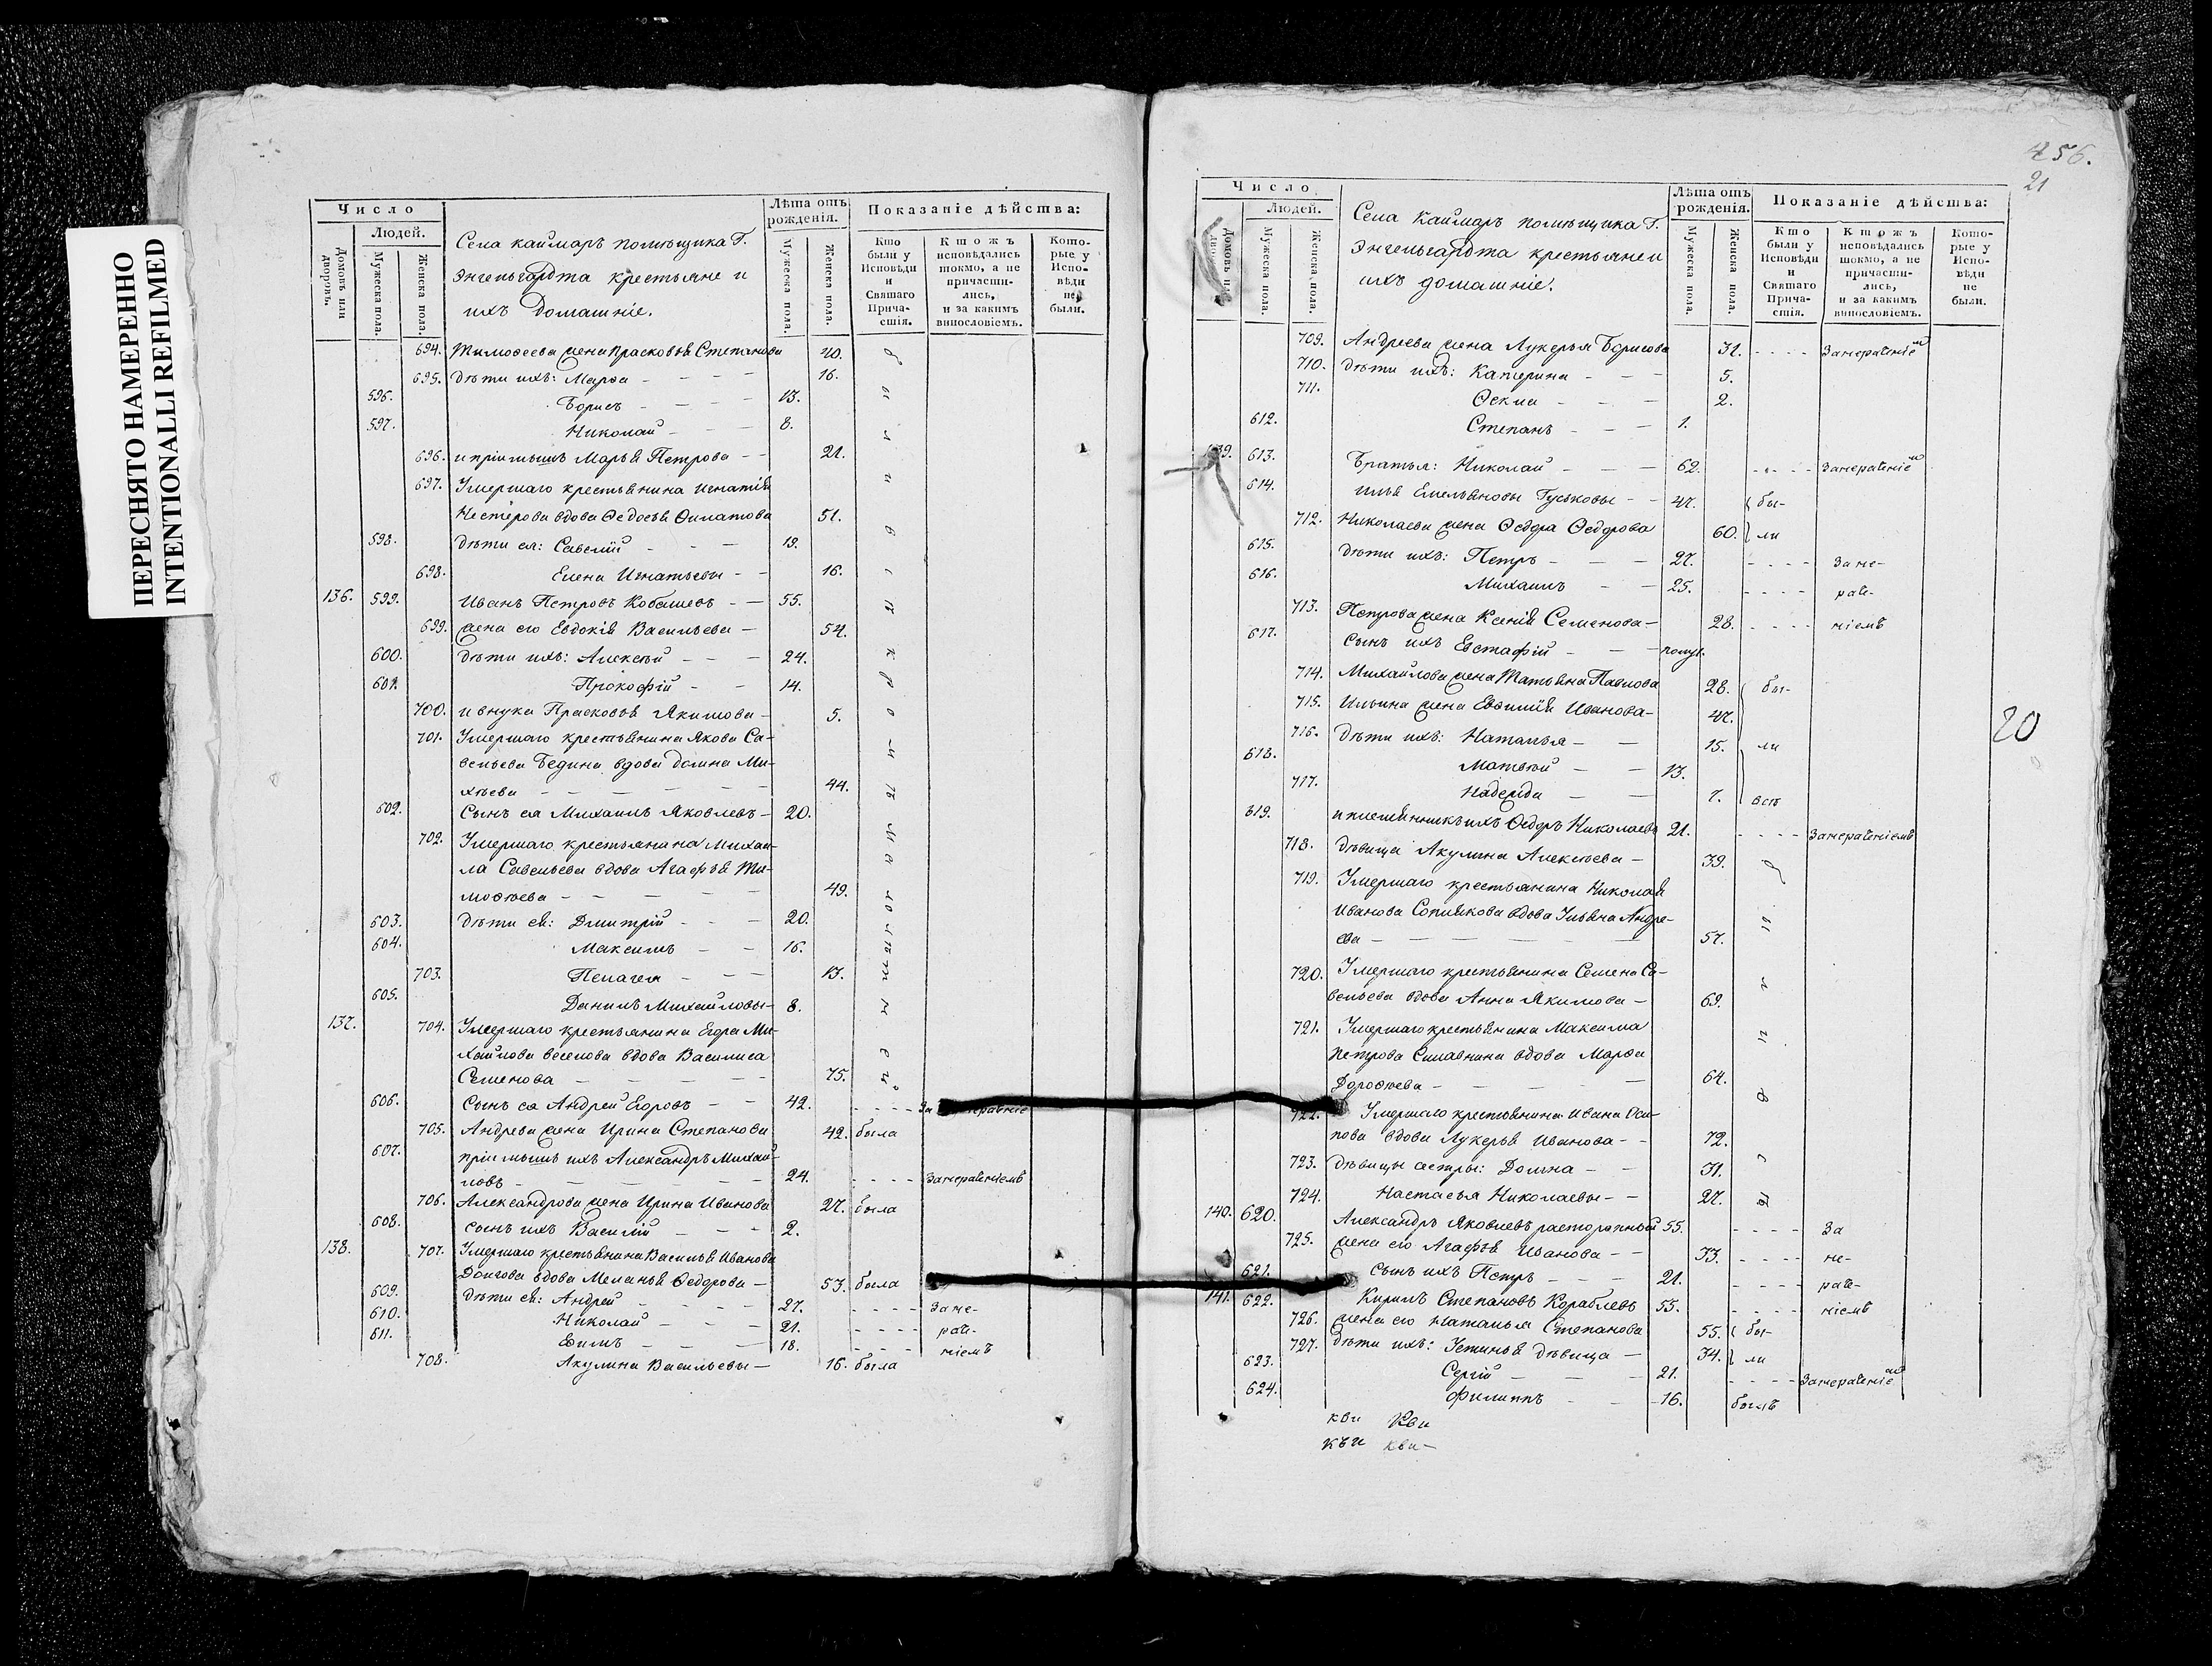 ПЕРЕСНЯТО НАМЕРЕННО
INTENTIONALLI REFILMED
Число
Людей.
Домовъ или дворовъ.
Мужеска пола.
Женска пола.
Села Каймаръ помѣщика Г.
Энгельгардта крестьяне и
ихъ домашніе.
Лѣта отъ рожденія.
Мужеска пола.
Женска пола.
Показаніе дѣйства:
Кто были у Исповѣди и Святаго Причастія.
Ктожъ исповѣдались токмо, а не причастились, и за какимъ винословіемъ.
Которые у Исповѣди не были.
694. Тимоѳеева жена Прасковья Степанова 40.
695. дѣти ихъ: Марѳа - - - 16.
596. Борисъ - - - 13.
597. Николай - - - 8.
696. и пріемышъ Марья Петрова - - 21.
697. Умершаго крестьянина Игнатія
Нестерова вдова Ѳедосья Филатова 51.
598. дѣти ея: Савелій - - - 19.
698. Елена Игнатьевы - - 16.
136. 599. Иванъ Петровъ Кобашевъ - - 55.
699. жена его Евдокія Васильева - 54.
600. дѣти ихъ: Алексѣй - - - 24.
601. Прокофій - - 14.
700. и внука Прасковья Якимова - 5.
701. Умершаго крестьянина Якова Са-
вельева Бедина вдова Домна Ми-
хѣева - - - - - 44.
602. Сынъ ея Михаилъ Яковлевъ - 20.
702. Умершаго крестьянина Михаи-
ла Савельева вдова Агафья Ти-
моѳеева - - - - 49.
603. дѣти ея: Дмитрій - - - 20.
604. Максимъ - - 16.
703. Пелагея - - - 13.
605. Данилъ Михайловы - 8.
137. 704. Умершаго крестьянина Егора Ми-
хайлова Веселова вдова Василиса
Семенова - - - - - 75.
606. Сынъ ея Андрей Егоровъ - - 42. - - - -
705. Андреева жена Ирина Степанова 42. была
607. пріемышъ ихъ Александръ Михай-
ловъ - - - - - 24. - - - - Занераченіемъ
706. Александрова жена Ирина Иванова 27. была
608. сынъ ихъ Василій - - - 2.
138. 707. Умершаго крестьянина Василья Иванова
Долгова вдова Меланья Ѳедорова - 53. была
609. дѣти ея: Андрей - - - 27. - - - - Зане-
610. Николай - - - 21. - - - - раче-
611. Ефимъ - - - 18. - - - - ніемъ
708. Акулина Васильевы - 16. была
456.
21
Число
Людей.
Мужеска пола.
Женска пола.
Села Каймаръ помѣщика Г.
Энгельгардта крестьяне и
ихъ домашніе.
Лѣта отъ рожденія.
Мужеска пола.
Женска пола.
Показаніе дѣйства:
Кто были у Исповѣди и Святаго Причастія.
Ктожъ исповѣдались токмо, а не причастились, и за какимъ винословіемъ.
Которые у Исповѣди не были.
709. Андреева жена Лукерья Борисова 31. - - - - Занераченіемъ
710. дѣти ихъ: Катерина - - - 5.
711. Ѳекла - - - 2.
612. Степанъ - - - 1.
139. 613. Братья: Николай - - - 62. - - - - Занераченіемъ
614. Илья Емельяновы Гуськовы - - 47. бы-
712. Николаева жена Ѳедора Ѳедорова 60. ли
615. дѣти ихъ: Петръ - - - 27. - - - - Зане-
616. Михаилъ - - 25. - - - - раче-
713. Петрова жена Ксенія Семенова - 28. - - - - ніемъ
617. сынъ ихъ Евстафій - - - полуг.
714. Михайлова жена Татьяна Павлова 28. бы-
715. Ильина жена Евфимія Иванова - 47.
716. дѣти ихъ: Наталья - - 15. ли
618. Матвѣй - - 13.
717. Надежда - - 7. всѣ
619. и племянникъ ихъ Ѳедоръ Николаевъ 21. - - - - Занераченіемъ
718. дѣвица Акулина Алексѣева - 39.
719. Умершаго крестьянина Николая
Иванова вдова Ульяна Андре-
ева - - - - - 57.
720. Умершаго крестьянина Семена Са-
вельева вдова Анна Якимова - 69.
721. Умершаго крестьянина Максима
Петрова вдова Марѳа
Дороѳеева - - - - 64.
722. Умершаго крестьянина Ивана Оси-
пова вдова Лукерья Иванова - - 72.
723. дѣвицы сестры: Домна - - 31.
724. Настасья Николаевы - - 27.
140. 620. Александръ Яковлевъ расторопный 55. - - - - За
725. жена его Агафья Иванова - - 33. - - - - не-
621. сынъ ихъ Петръ - - - 21. - - - - раче-
141. 622. Кирилъ Степановъ Кораблевъ 55. - - - - ніемъ
726. жена его Наталья Степанова 55. бы-
727. дѣти ихъ: Устинья дѣвица - 34. ли
623. Сергій - - - 21. - - - - Занераченіемъ
624. Филиппъ - - 16. былъ
20
кви Кви
къи кви-